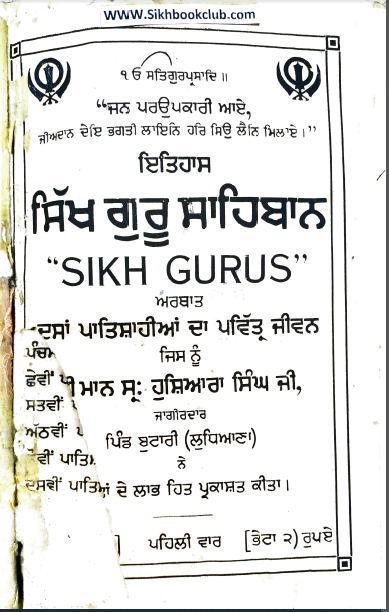 www.Sikhbookclub.com
ੴ ਸਤਿਗੁਰਪ੍ਰਸਾਦਿ॥
“ਜਨ ਪਰਉਪਕਾਰੀ ਆਏ,
ਜੀਅਦਾਨ ਦੇਇ ਭਗਤੀ ਲਾਇਨਿ ਹਰਿ ਸਿਉ ਲੈਨਿ ਮਿਲਾਏ।”
ਇਤਿਹਾਸ
ਸਿੱਖ ਗੁਰੂ ਸਾਹਿਬਾਨ
“SIKH GURUS”
ਅਰਥਾਤ
ਦਸਾਂ ਪਾਤਿਸ਼ਾਹੀਆਂ ਦਾ ਪਵਿੱਤ੍ਰ ਜੀਵਨ
ਪੰਚਮ ਜਿਸ ਨੂੰ
ਛੇਵੀਂ ਮਾਨ ਸ੍ਰ: ਹੁਸ਼ਿਆਰਾ ਸਿੰਘ ਜੀ,
ਸਤਵੀਂ ਜਾਗੀਰਦਾਰ
ਅੱਠਵੀਂ ਪਿੰਡ ਬੁਟਾਰੀ (ਲੁਧਿਆਣਾ)
ਪਾਤਿ ਨੇ
ਦਸਵੀਂ ਪਾਤਿ ਦੇ ਲਾਭ ਹਿਤ ਪ੍ਰਕਾਸ਼ਤ ਕੀਤਾ।
] ਪਹਿਲੀ ਵਾਰ [ਭੇਟਾ ੨) ਰੁਪਏ